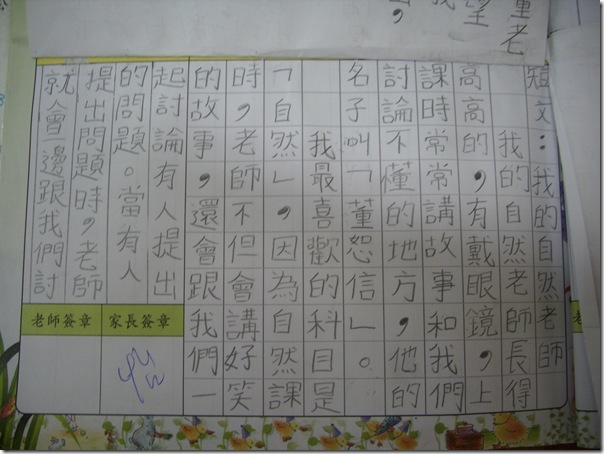 短文：我的自然老師
我的自然老師長得
高高的，有戴眼鏡，上
課時常常講故事和我們
討論不懂的地方，他的
名子叫「董恕信」。
我最喜歡的科目是
「自然」，因為自然課
時，老師不但會講好笑
的故事，還會跟我們一
起討論有人提出
的問題。當有人
提出問題時，老師
就會一邊跟我們討
家長簽章
老師簽章